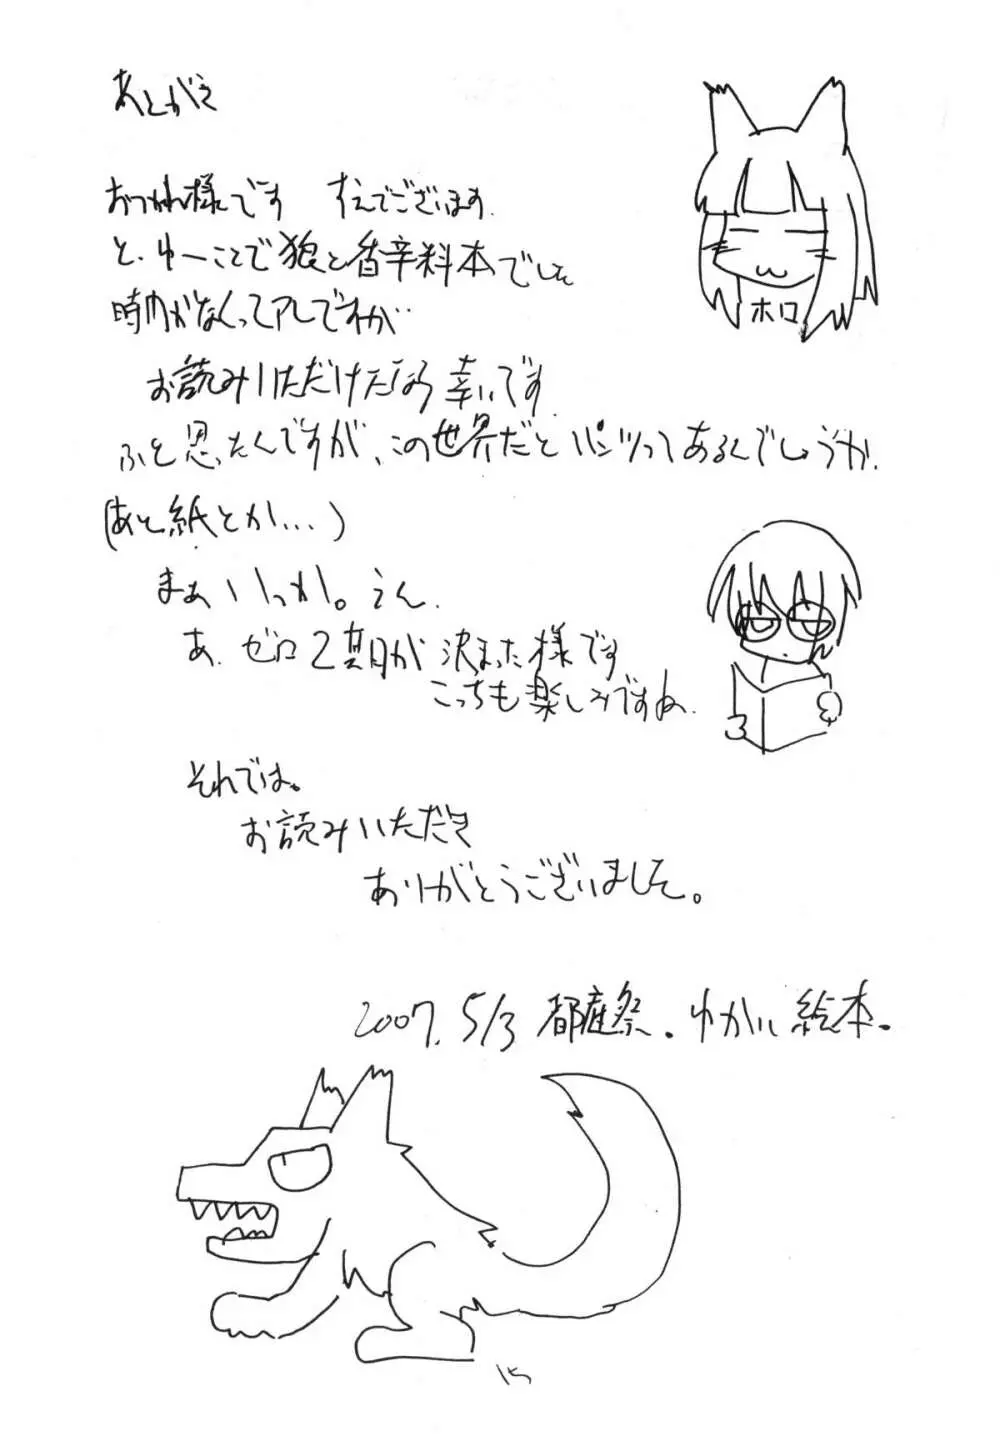 あとがき
おつかれ様です すえでございます。
と、ゆーことで狼と香辛料本でした
時間がなくってアレですが…
お読みいただけたなら幸いです
ふと思ったんですが、この世界だとパンツってあるんでしょうか。
(あと紙とか...)
まぁいっか。うん。
あ、ゼロ2期が決まった様です
こっちも楽しみですね。
それでは。
お読みいただき
ありがとうございました。
2007. 5/3 都庭祭。ゆかいに絵本。
ホロ
15